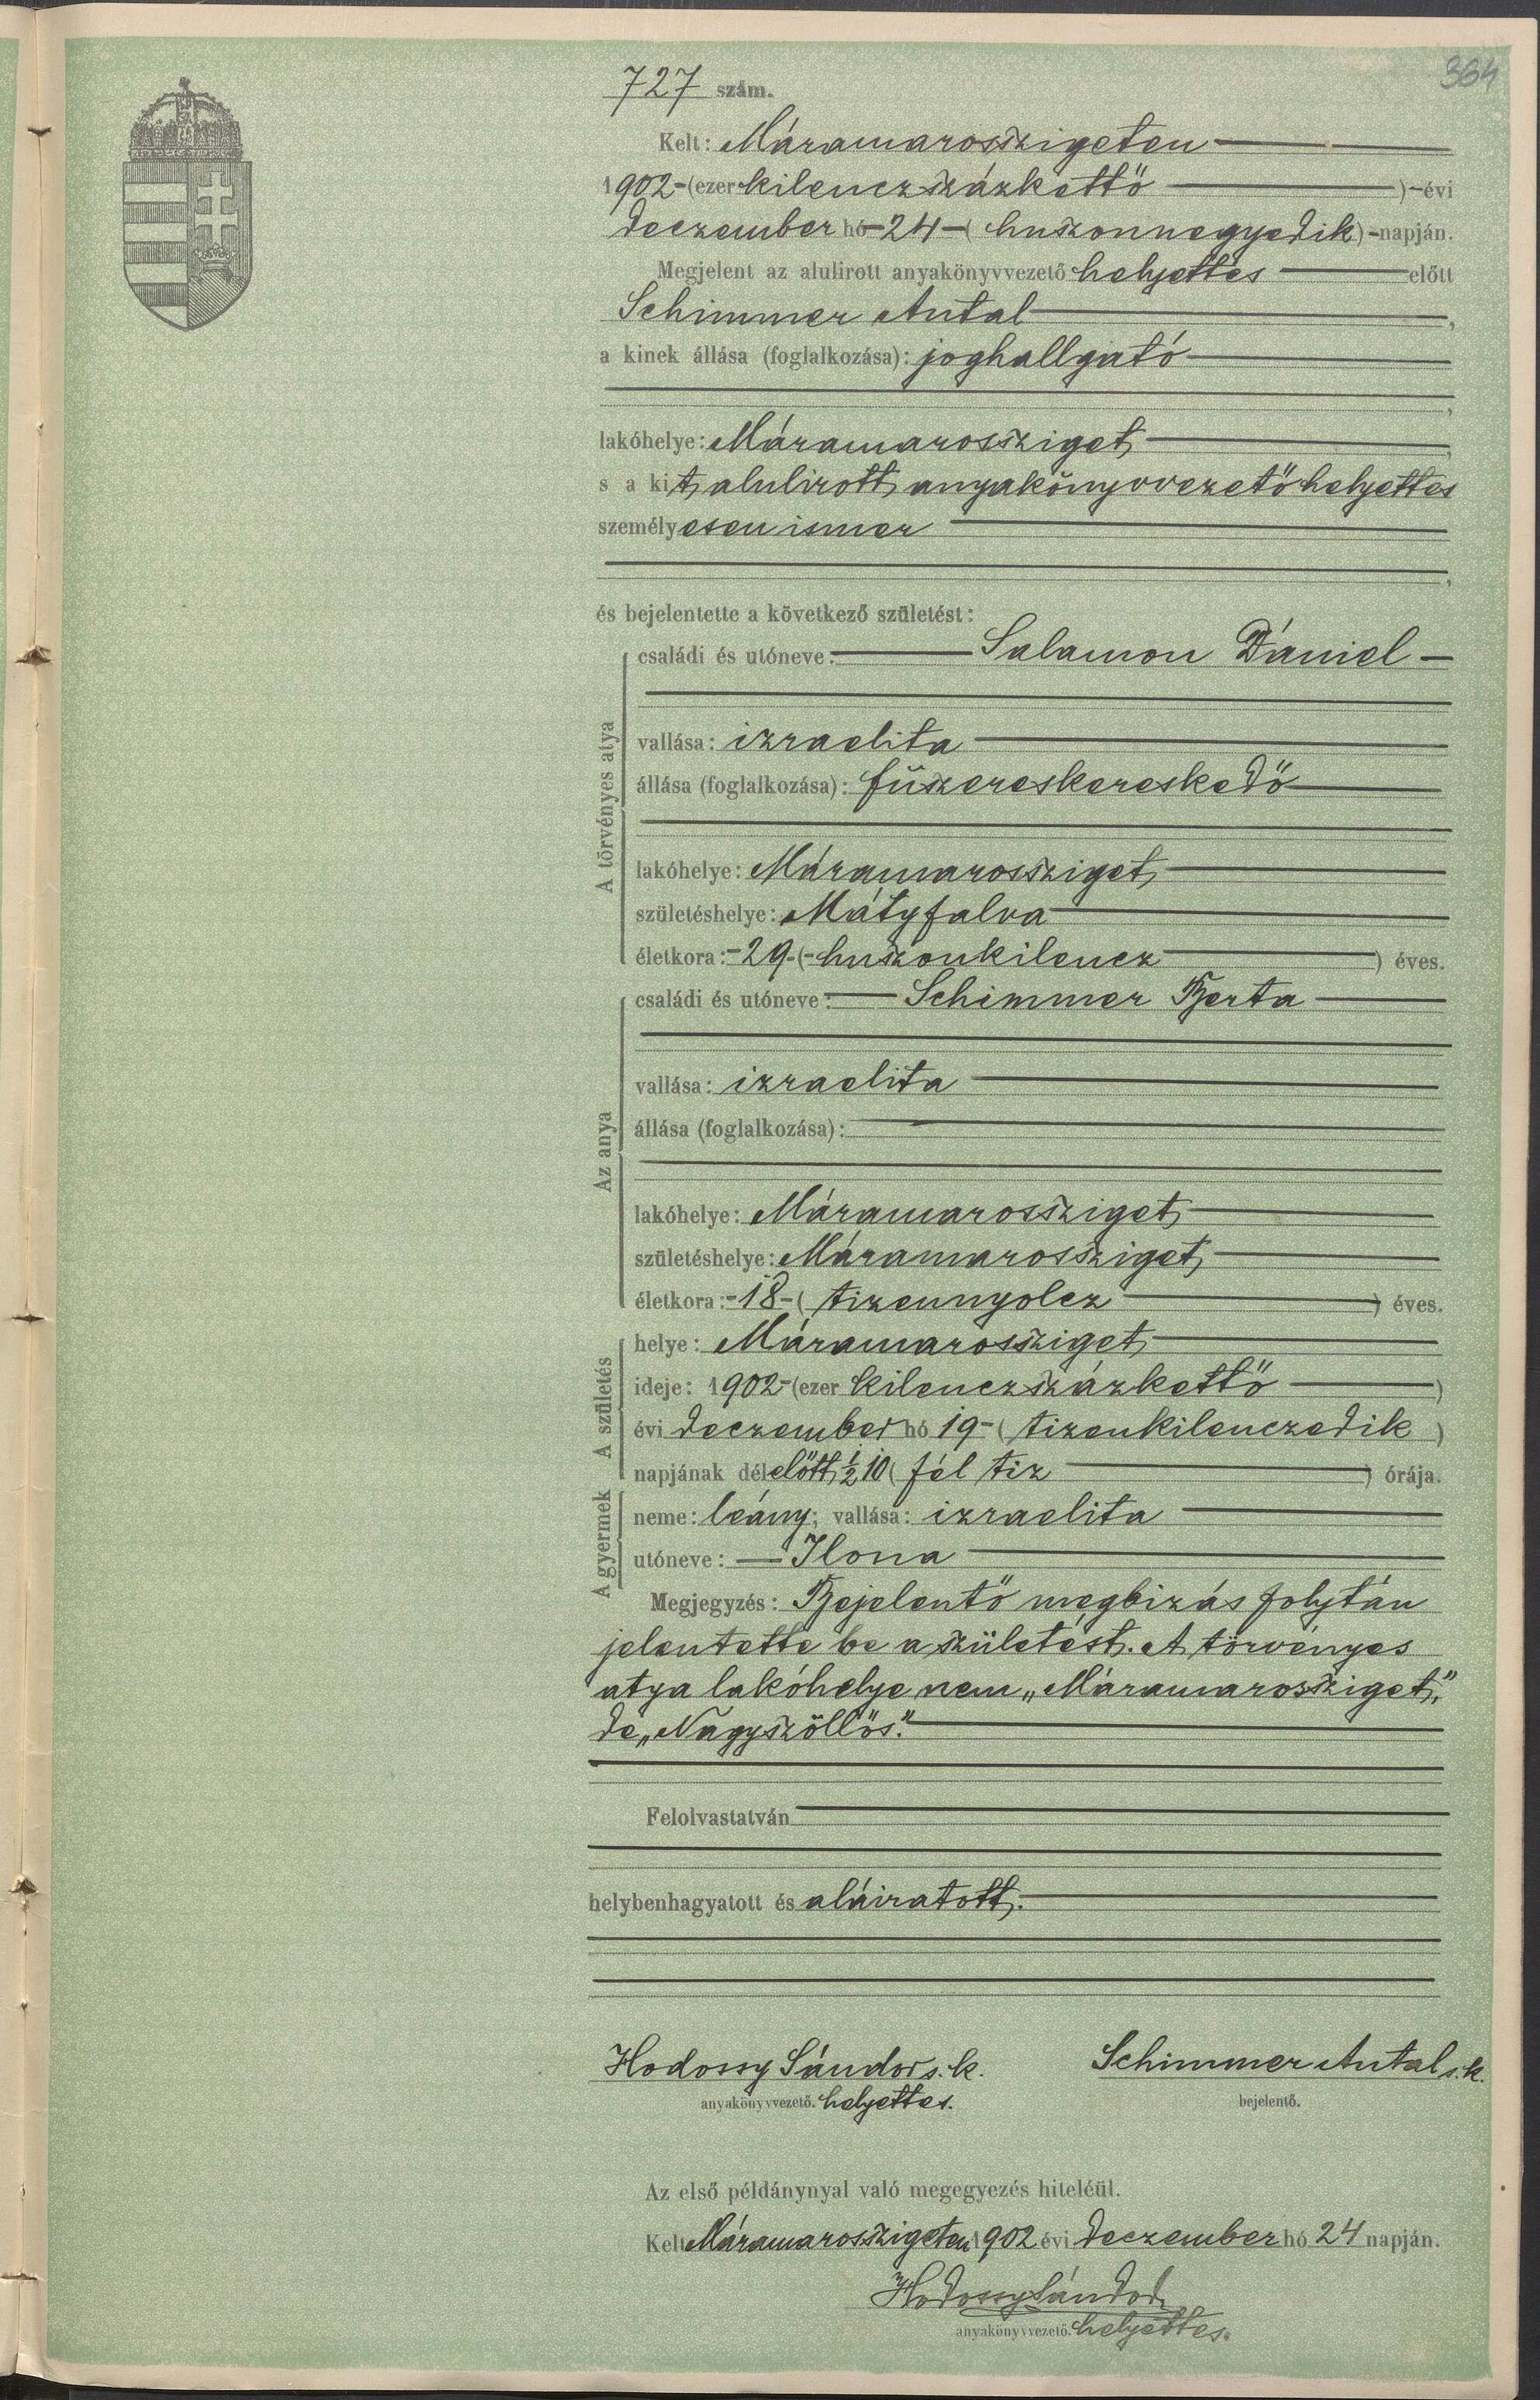 364
727 szám.
Kelt: Máramarosszigeten
1902 (ezer kilenczszázkettő) évi
deczember hó 24 (huszonnegyedik) napján.
Megjelent az alulirott anyakönyvvezető helyettes előtt
Schimmer Antal,
a kinek állása (foglalkozása): joghallgató
,
lakóhelye: Máramarossziget,
s a kit alulirott anyakönyvvezető helyettes
személyesen ismer
,
és bejelentette a következő születést:
A törvényes atya
családi és utóneve: Salamon Dániel
vallása: izraelita
állása (foglalkozása): fűszereskereskedő
lakóhelye: Máramarossziget
születéshelye: Mátyfalva
életkora: 29 (huszonkilencz) éves.
Az anya
családi és utóneve: Schimmer Berta
vallása: izraelita
állása (foglalkozása):
lakóhelye: Máramarossziget
születéshelye: Máramarossziget
életkora: 18 (tizennyolcz) éves.
A születés
helye: Máramarossziget
ideje: 1902 (ezer kilenczszázkettő)
évi deczember hó 19 (tizenkilenczedik)
napjának délelőtt ½10 (fél tiz) órája.
A gyermek
neme: leány; vallása: izraelita
utóneve: Ilona
Megjegyzés: Bejelentő megbizás folytán
jelentette be a születést. A törvényes
atya lakóhelye nem „Máramarossziget,"
de „Nagyszőllős".
Felolvastatván
helybenhagyatott és aláiratott.
Hodossy Sándor s.k. Schimmer Antal s.k.
anyakönyvvezető. helyettes. bejelentő.
Az első példánynyal való megegyezés hiteléül.
Kelt Máramarosszigeten 1902 évi deczember hó 24 napján.
Hodossy Sándor
anyakönyvvezető. helyettes.